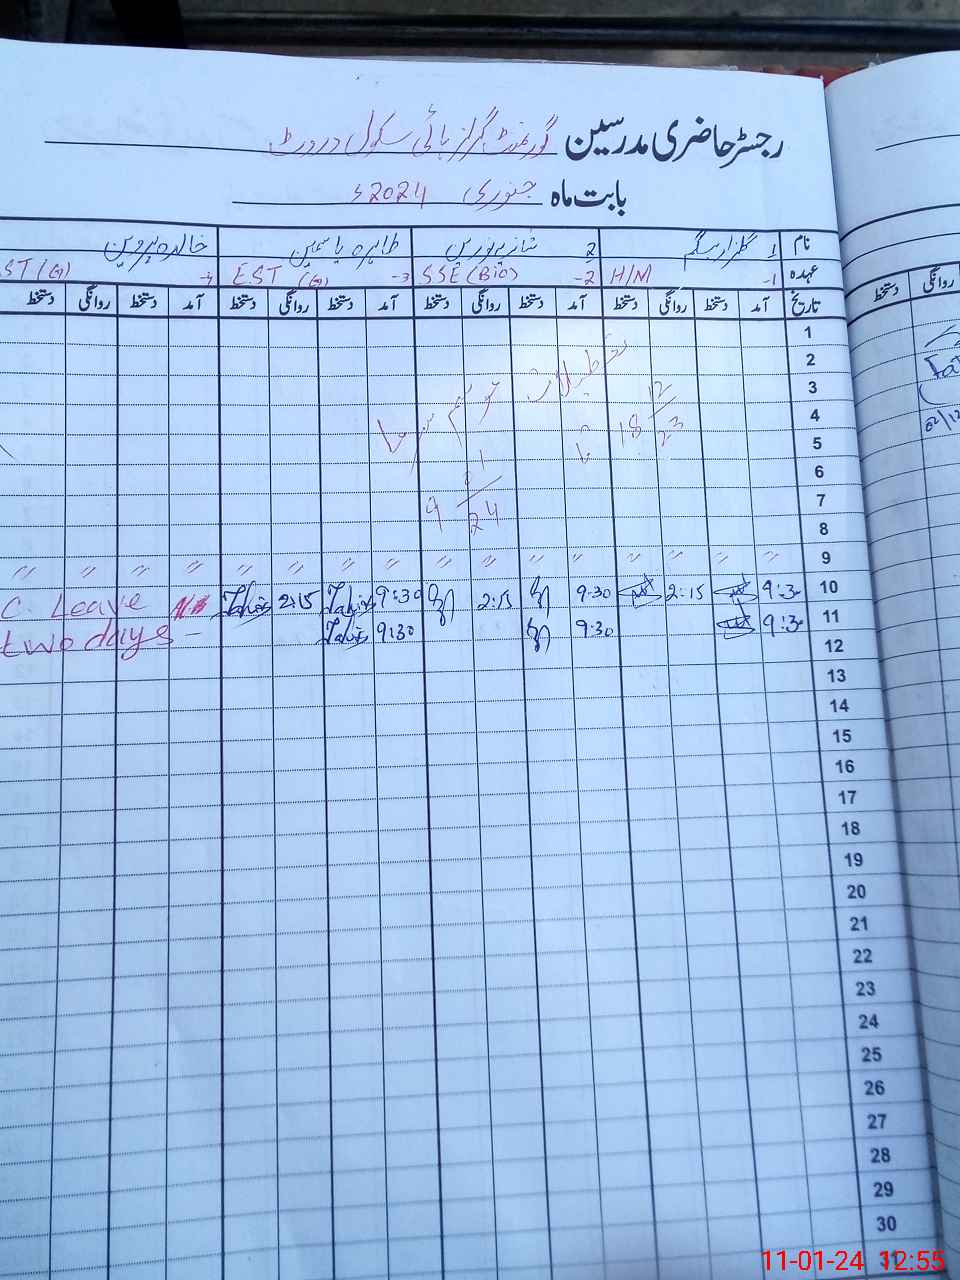 رجسٹر حاضری مدرسین گورنمنٹ گرلز ہائی سکول
بابت ماہ جنوری 2024ء
نام 1 گلزار بیگم 2 شازیہ یونس طاہرہ یاسمین خالدہ پروین
عہدہ 1- H/M 2- SSE (Bio) 3- EST (G) 4- ST (G)
تاریخ آمد دستخط روانگی دستخط آمد دستخط روانگی دستخط آمد دستخط روانگی دستخط آمد دستخط روانگی دستخط
روانگی دستخط
1
2
3
تعطیلات موسم سرما
4
18 12/23 تا
5
6
9 1/24
7
8
9 〃 〃 〃 〃 〃 〃 〃 〃 〃 〃 〃 〃 〃
10 9:30 2:15 9:30 2:15 9:30 Tahira 2:15 Tahira C Leave
11 9:30 9:30 9:30 Tahira two days -
12
13
14
15
16
17
18
19
20
21
22
23
24
25
26
27
28
29
30
31
11-01-24 12:55